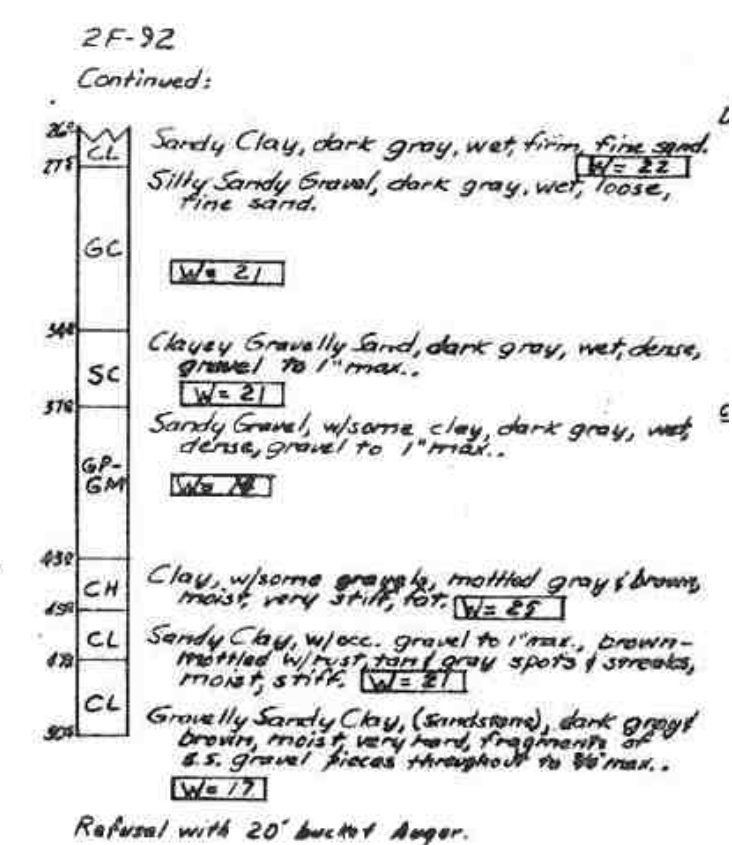 2F-92
Continued:
26⁰
CL
Sandy Clay, dark gray, wet, firm, fine sand.
W= 22
27⁵
Silty Sandy Gravel, dark gray, wet, loose,
fine sand.
GC
W= 21
34⁰
Clayey Gravelly Sand, dark gray, wet, dense,
gravel to 1" max..
SC
W= 21
37⁰
Sandy Gravel, w/some clay, dark gray, wet,
dense, gravel to 1" max..
GP-
GM
W=
43⁰
CH
Clay, w/some gravels, mottled gray & brown,
moist, very stiff, fat.
W= 25
45⁰
CL
Sandy Clay, w/occ. gravel to 1" max., brown-
mottled w/rust, tan & gray spots & streaks,
moist, stiff.
W= 21
47⁰
CL
Gravelly Sandy Clay, (sandstone), dark gray &
brown, moist, very hard, fragments of
s.s. gravel pieces throughout to max..
50⁰
W= 17
Refusal with 20" bucket Auger.